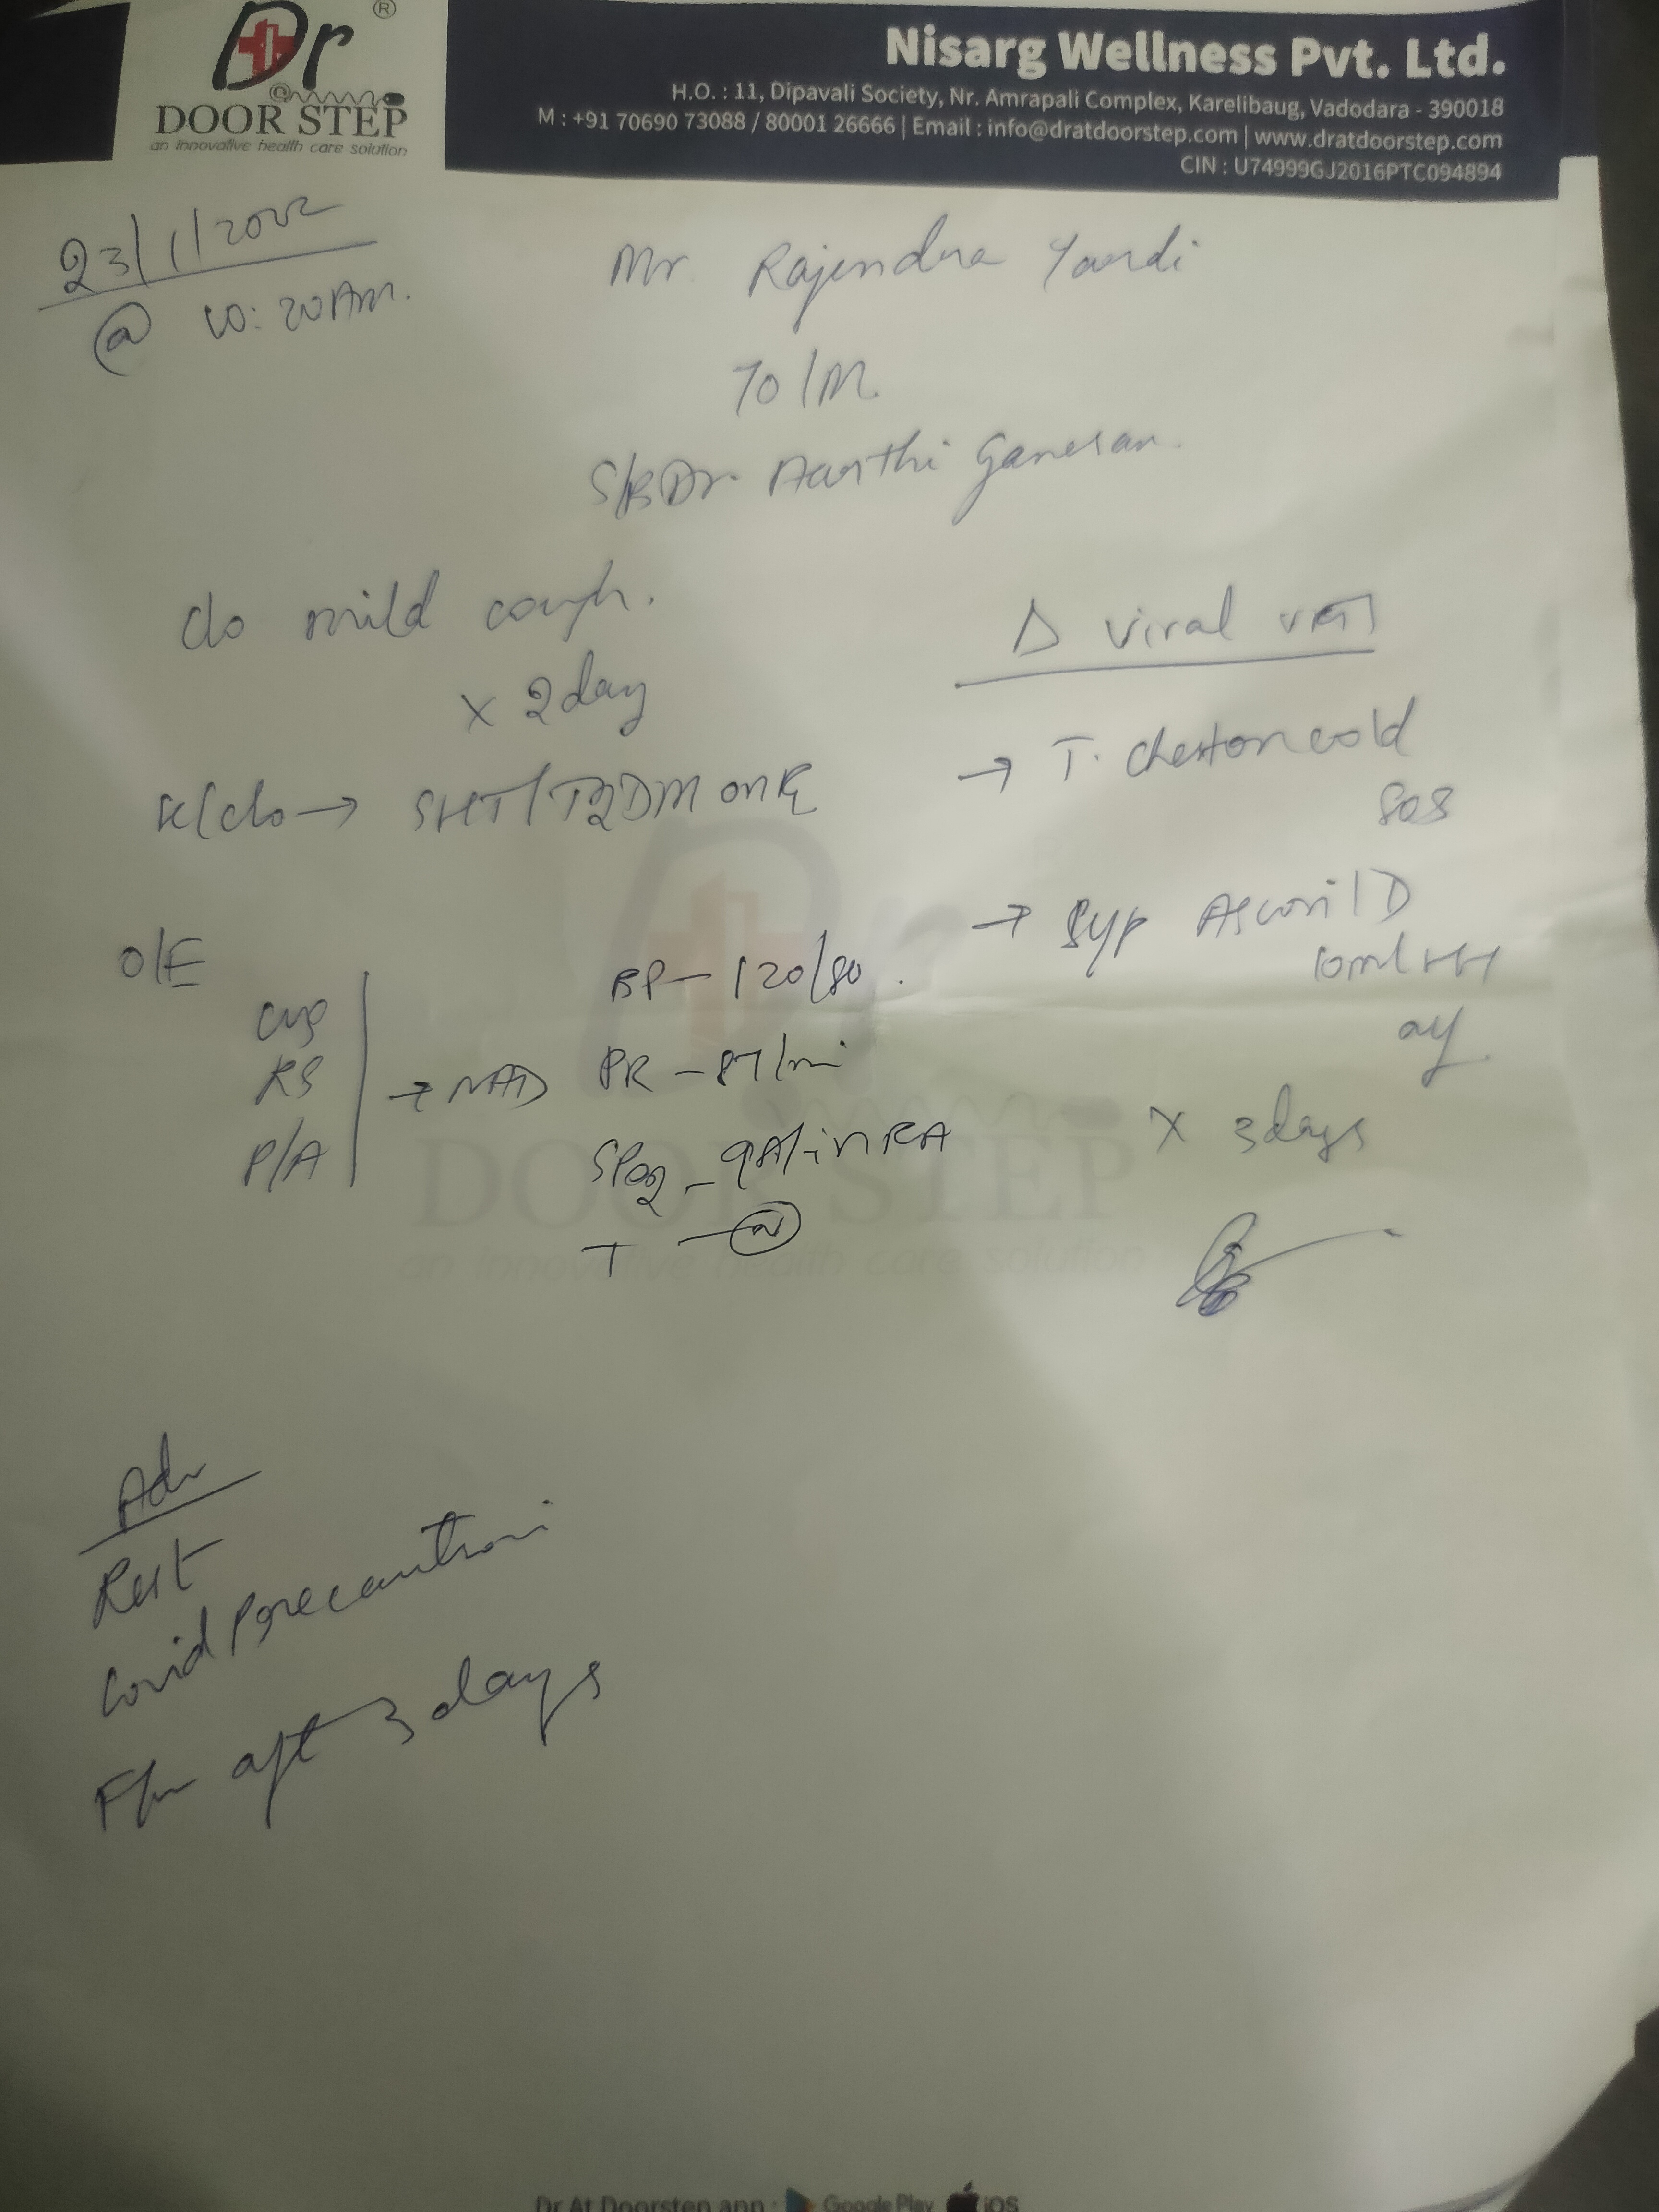 Dr
®
@
DOOR STEP
an innovative health care solution
Nisarg Wellness Pvt. Ltd.
H.O. : 11, Dipavali Society, Nr. Amrapali Complex, Karelibaug, Vadodara - 390018
M : +91 70690 73088 / 80001 26666 | Email : info@dratdoorstep.com | www.dratdoorstep.com
CIN : U74999GJ2016PTC094894
23/1/2022
@ 10:20AM.
Mr. Rajendra Yardi
70/M
S/B Dr. Aarthi Ganesan.
c/o mild cough.
x 2 day
K/c/o → SHT/T2DM on Rx
O/E
CVS
RS
P/A
→ NAD
BP - 120/80.
PR - 87/min
SPO2 - in RA
T - N
Δ Viral
→ T. cheston cold
SOS
→ Syp Ascoril D
10ml
x 3 days
Adv
Rest
Covid Precautions
F/u aft 3 days
DOOR STEP
an innovative health care solution
Dr At Doorstep app : Google Play iOS